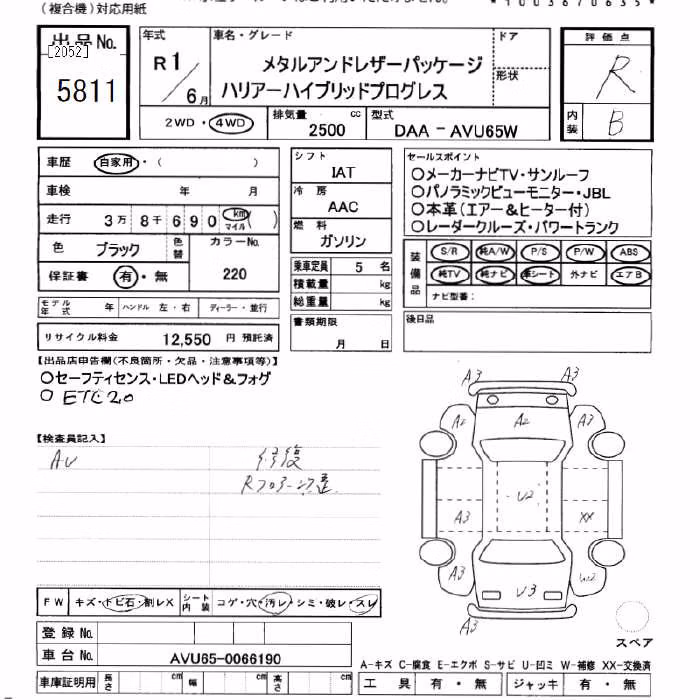 (複合機)対応用紙
*1003670635*
出品No.
[2052]
5811
年式
R1/6月
車名・グレード
メタルアンドレザーパッケージ
ハリアーハイブリッドプログレス
ドア
形状
評価点
R
内装
B
2WD・4WD
排気量
2500 cc
型式
DAA－AVU65W
車歴 自家用・( )
車検 年 月
走行 3万8千690 km マイル ( )
色 ブラック 色替
カラーNo. 220
保証書 有・無
モデル年式 年 ハンドル 左・右 ディーラー・並行
リサイクル料金 12,550 円 預託済
シフト
IAT
冷房
AAC
燃料
ガソリン
乗車定員 5 名
積載量 kg
総重量 kg
書類期限
月 日
セールスポイント
○メーカーナビTV・サンルーフ
○パノラミックビューモニター・JBL
○本革(エアー&ヒーター付)
○レーダークルーズ・パワートランク
装備品
S/R 純A/W P/S P/W ABS
純TV 純ナビ 革シート 外ナビ エアB
ナビ型番:
後日品
【出品店申告欄(不良箇所・欠品・注意事項等)】
○セーフティセンス・LEDヘッド&フォグ
○ ETC2.0
【検査員記入】
AV 修復
A3 A3
A2 A2 A3
U2
A3 XX
A3 W2
U3
A3
スペア
FW キズ・トビ石・割レX
シート内装 コゲ・穴・汚レ・シミ・破レ・スレ
登録No.
車台No. AVU65-0066190
車庫証明用 長さ cm 幅 cm 高さ cm
A-キズ C-腐食 E-エクボ S-サビ U-凹ミ W-補修 XX-交換済
工具 有・無 ジャッキ 有・無